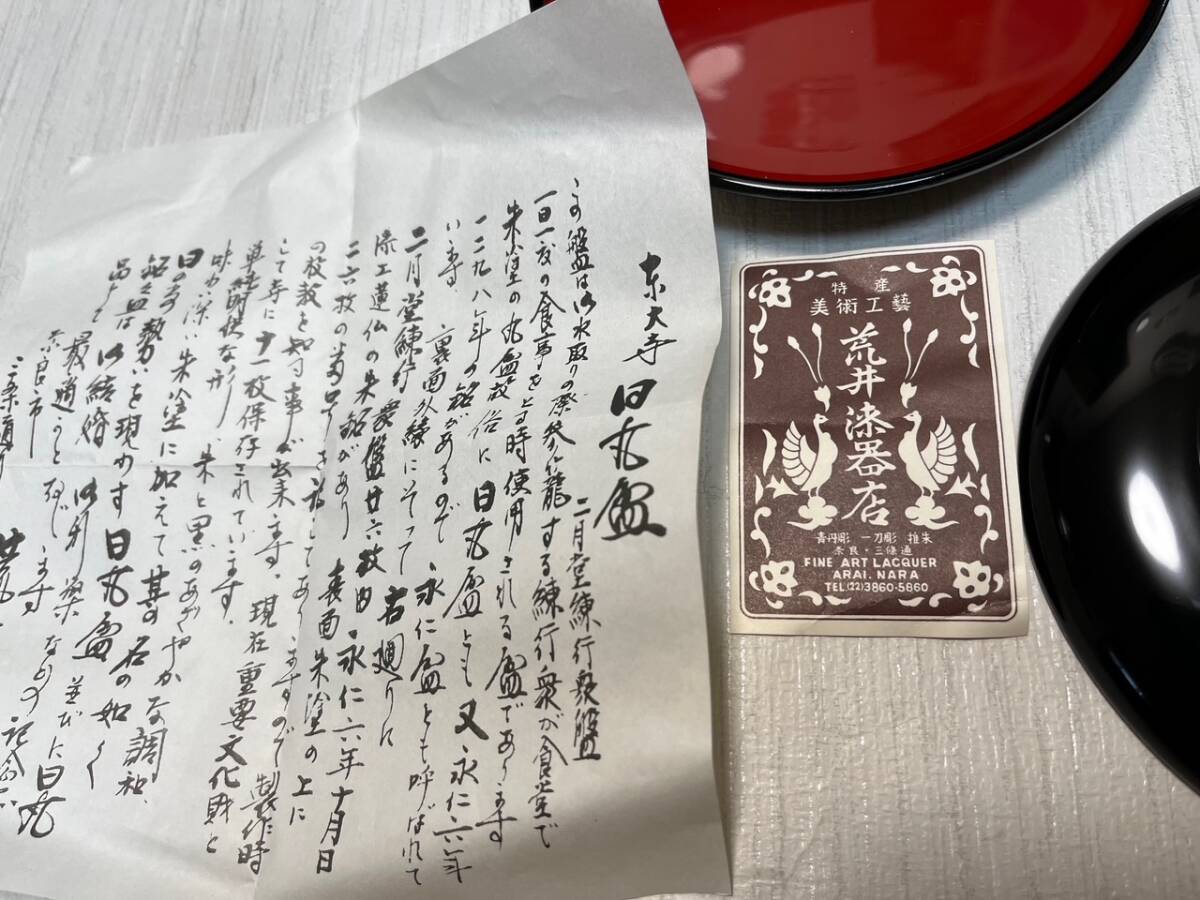 東大寺 日の丸盆
二月堂練行衆盤
この盤はお水取りの際参籠する練行衆が食堂で
一日一度の食事をとる時使用される盆であります
朱塗の丸盆故俗に日の丸盆とも又永仁六年
一二九八年の銘があるので永仁盆とも呼ばれて
います 裏面外縁にそって右廻りに
二月堂練行衆盤廿六枚内永仁六年十月日
漆工蓮仏の朱銘があり 表面朱塗の上に
の枚数を知る事が出来ます。現在重要文化財と
して寺に十一枚保存されています。
単純明快な形、朱と黒のあざやかな調和、
味わい深い朱塗に加えて其の名の如く
日の出の勢いを現わす日の丸盆
特産
美術工藝
荒井漆器店
青丹彫 一刀彫 堆朱
奈良・三條通
FINE ART LACQUER
ARAI. NARA
TEL.(22)3860-5860